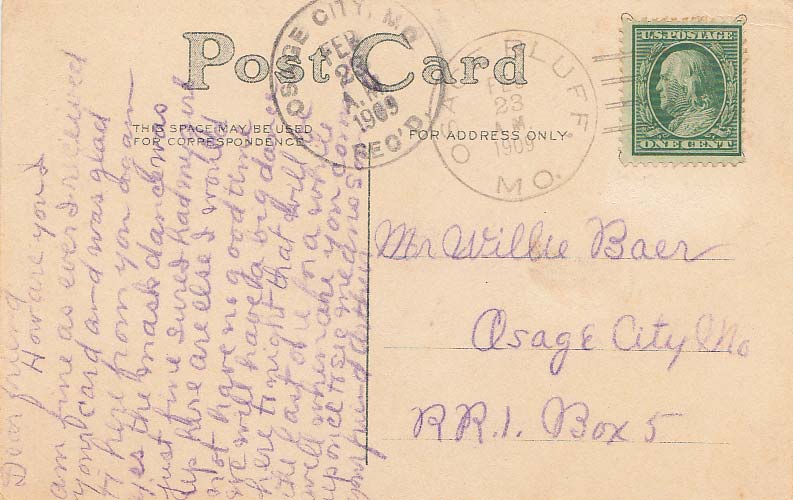 Post Card
THIS SPACE MAY BE USED
FOR CORRESPONDENCE
FOR ADDRESS ONLY.
OSAGE CITY, MO.
FEB
23
A.M.
1909
REC'D.
OSAGE BLUFF
FEB
23
A.M.
1909
MO.
U.S. POSTAGE
ONE CENT
Mr Willie Baer
Osage City Mo
R R. 1. Box 5
Dear friend
How are you I
am fine as ever I recieved
your card and was glad
to here from you again
yes the mask dance was
just fine I sure had my
up there are else I would
not have no good time
we will have a big dance
here to night that will be
the last one for a while
well when are you coming
up once to see me
your friend